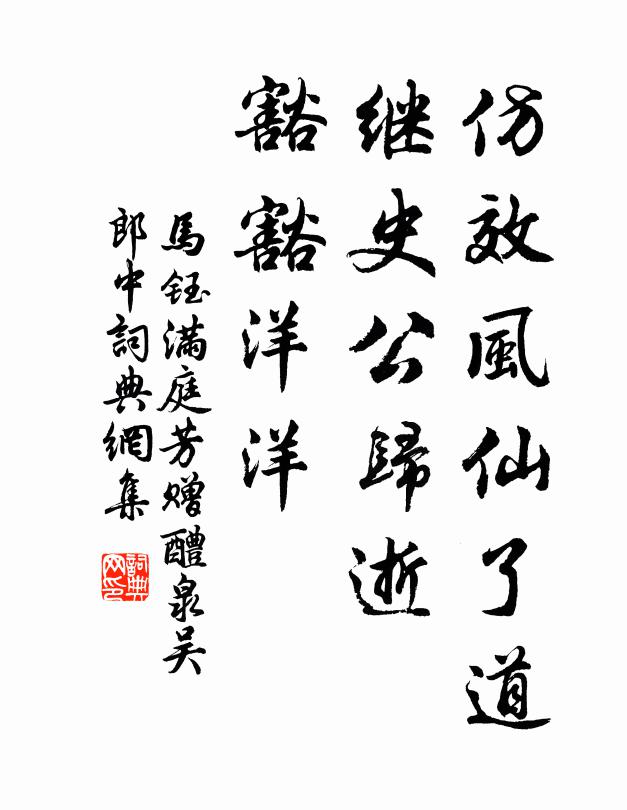 仿效風仙了道
继史公歸逝
豁豁洋洋
馬鈺满庭芳赠醴泉吴
郎中詞典網集
詞典
网印